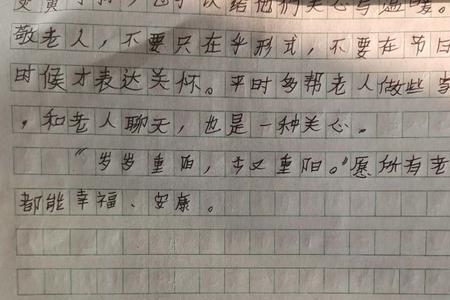 给他们关心与温暖。
敬老人,不要只在乎形式,不要在节日
时候才表达关怀。平时多帮老人做些
,和老人聊天,也是一种关心。
“岁岁重阳,今又重阳。”愿所有老
都能幸福、安康。